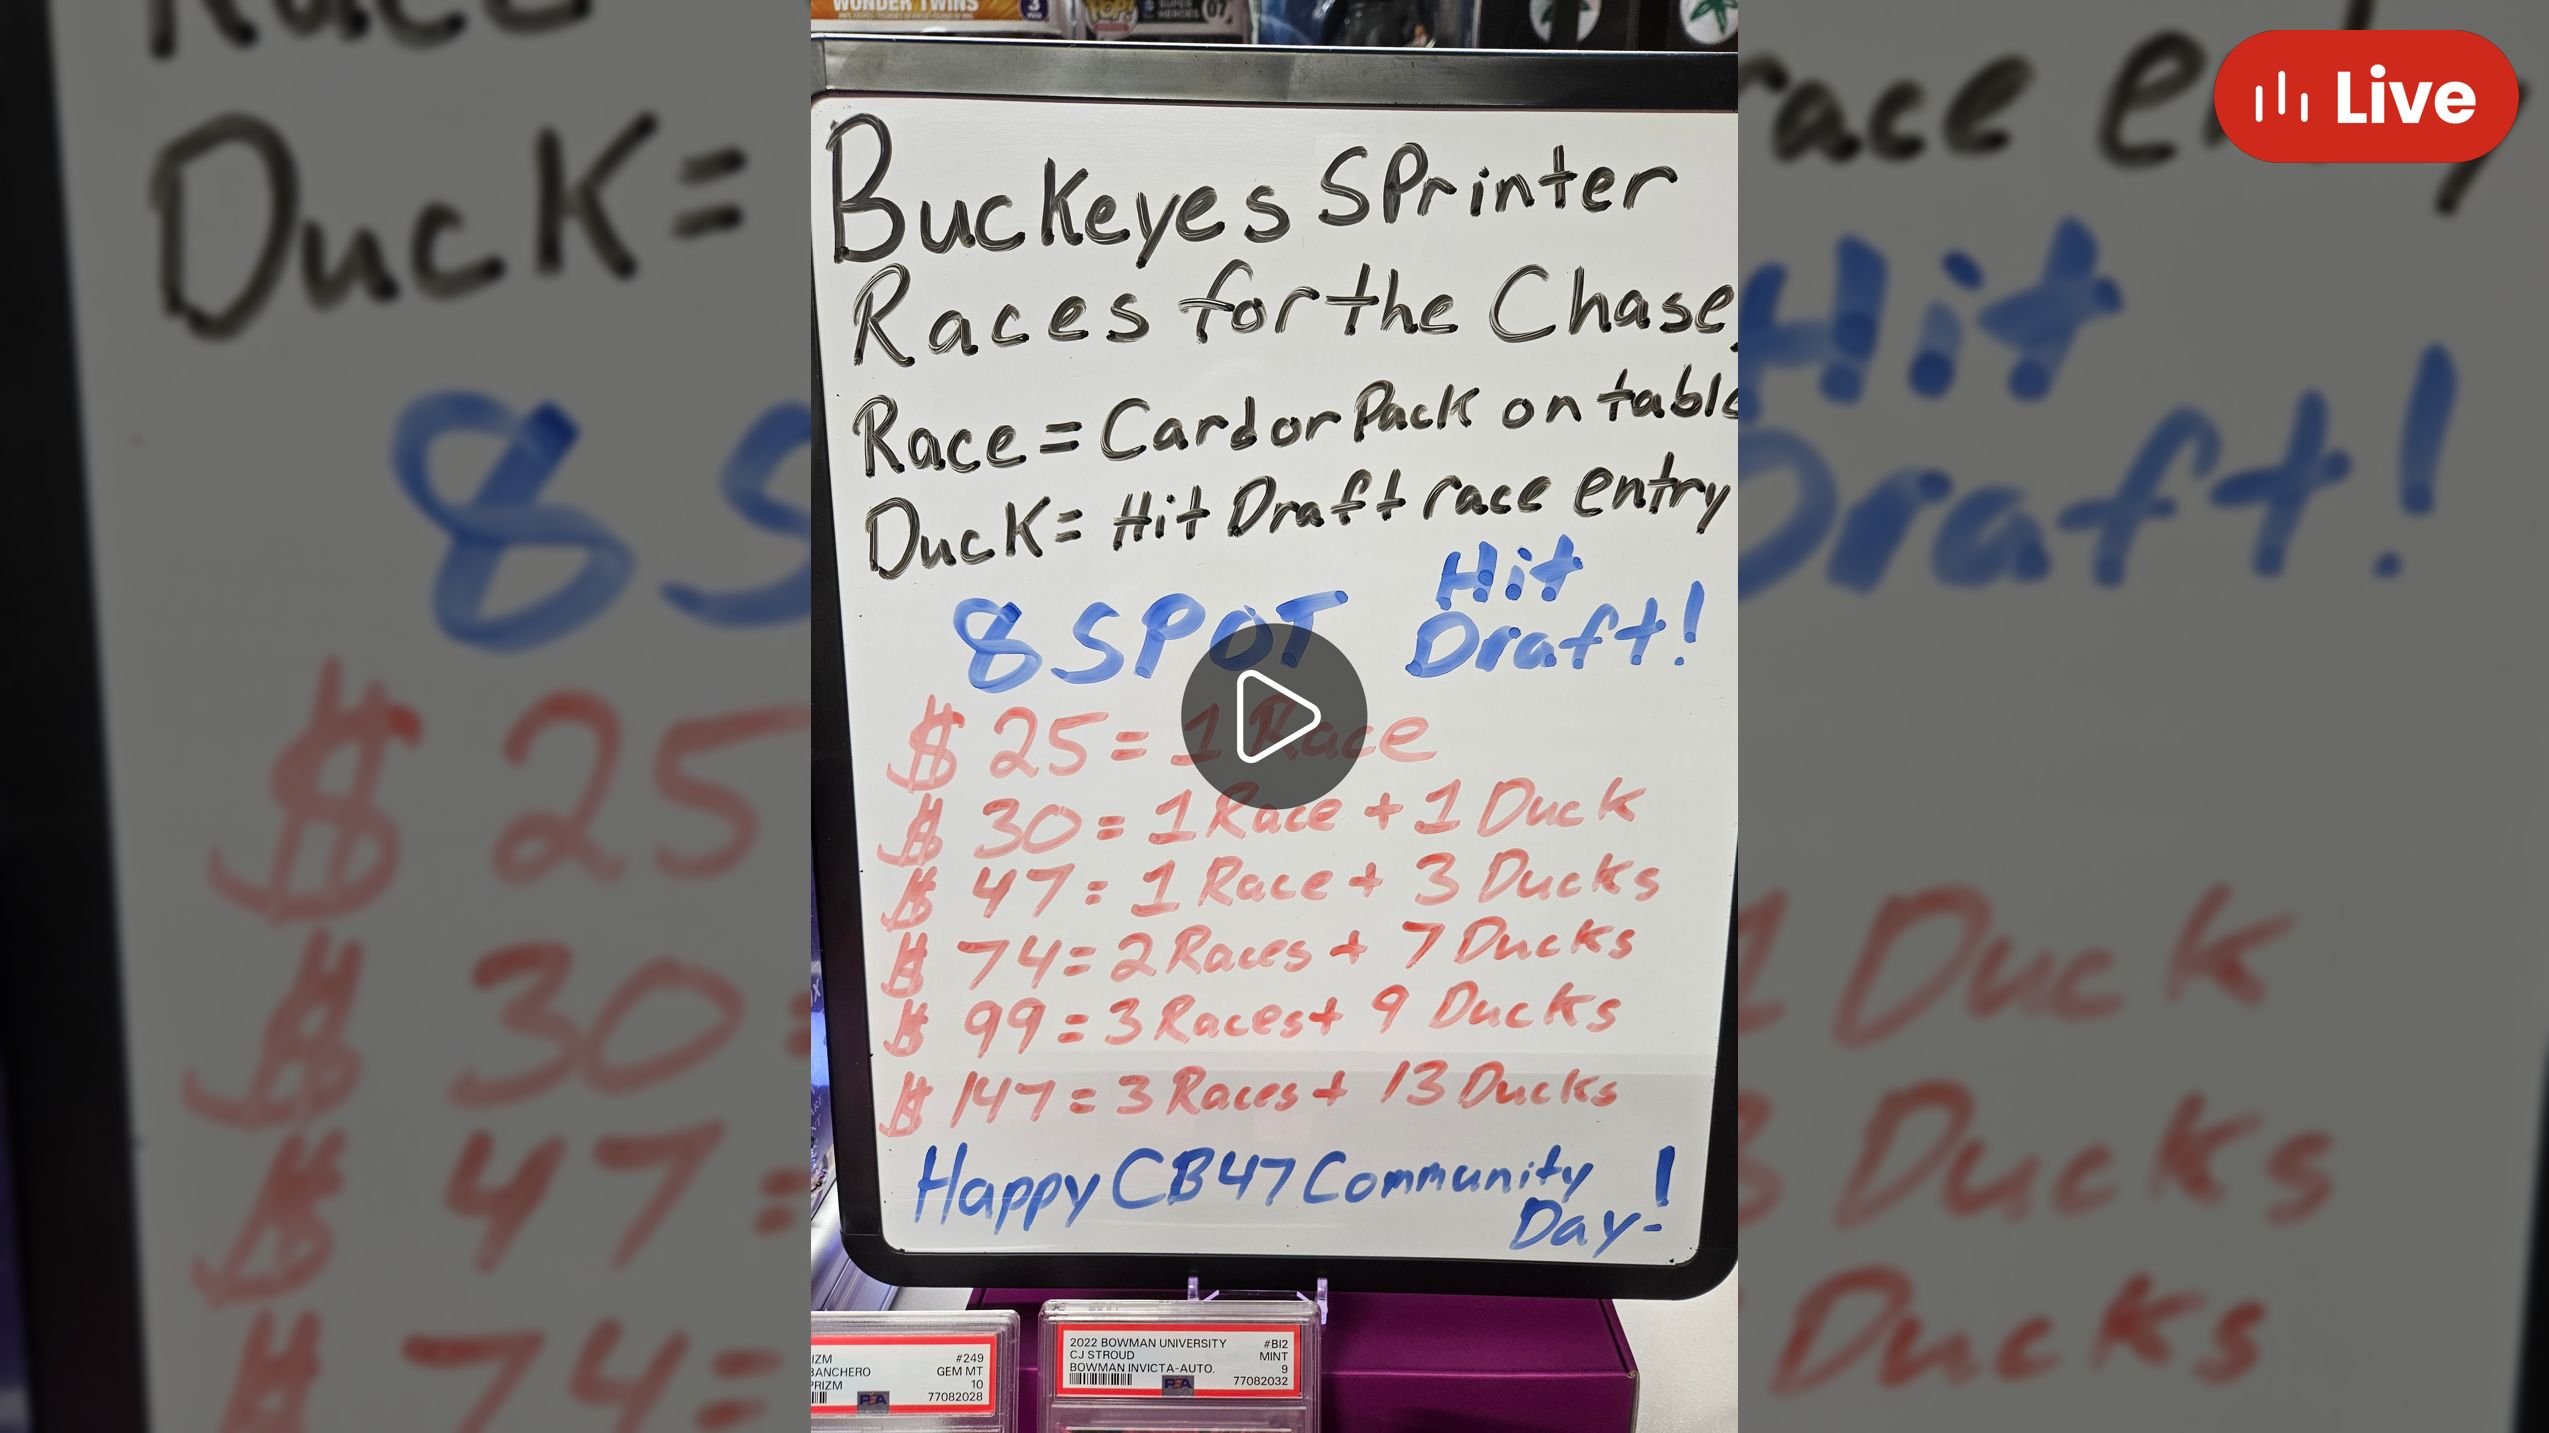 WONDER TWINS
3
POP!
SUPER
HEROES
07
Live
Buckeyes Sprinter
Races for the Chase,
Race = Card or Pack on table
Duck = Hit Draft race entry
8 SPOT
Hit
Draft!
$ 25 = 1 Race
$ 30 = 1 Race + 1 Duck
$ 47 = 1 Race + 3 Ducks
$ 74 = 2 Races + 7 Ducks
$ 99 = 3 Races + 9 Ducks
$ 147 = 3 Races + 13 Ducks
Happy CB47 Community
Day!
IZM #249
BANCHERO GEM MT
PRIZM 10
PSA 77082028
2022 BOWMAN UNIVERSITY #BI2
CJ STROUD MINT
BOWMAN INVICTA-AUTO. 9
PSA 77082032